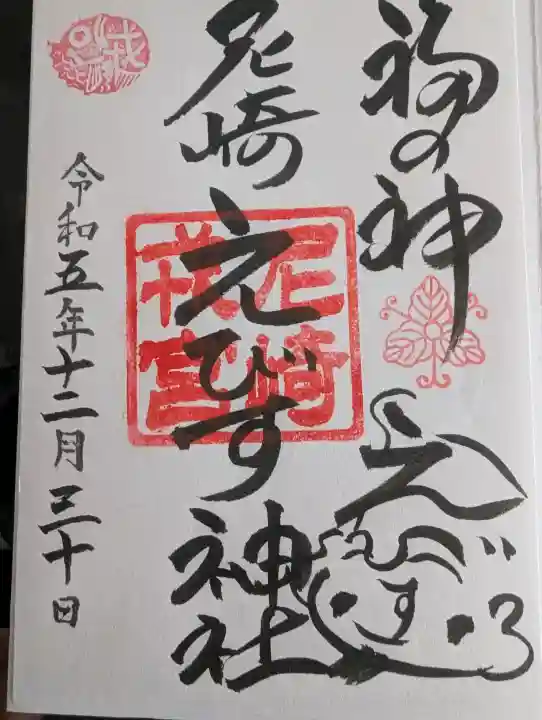 福の神
えびす
尼崎えびす神社
尼崎
戎宮
令和五年十二月三十日